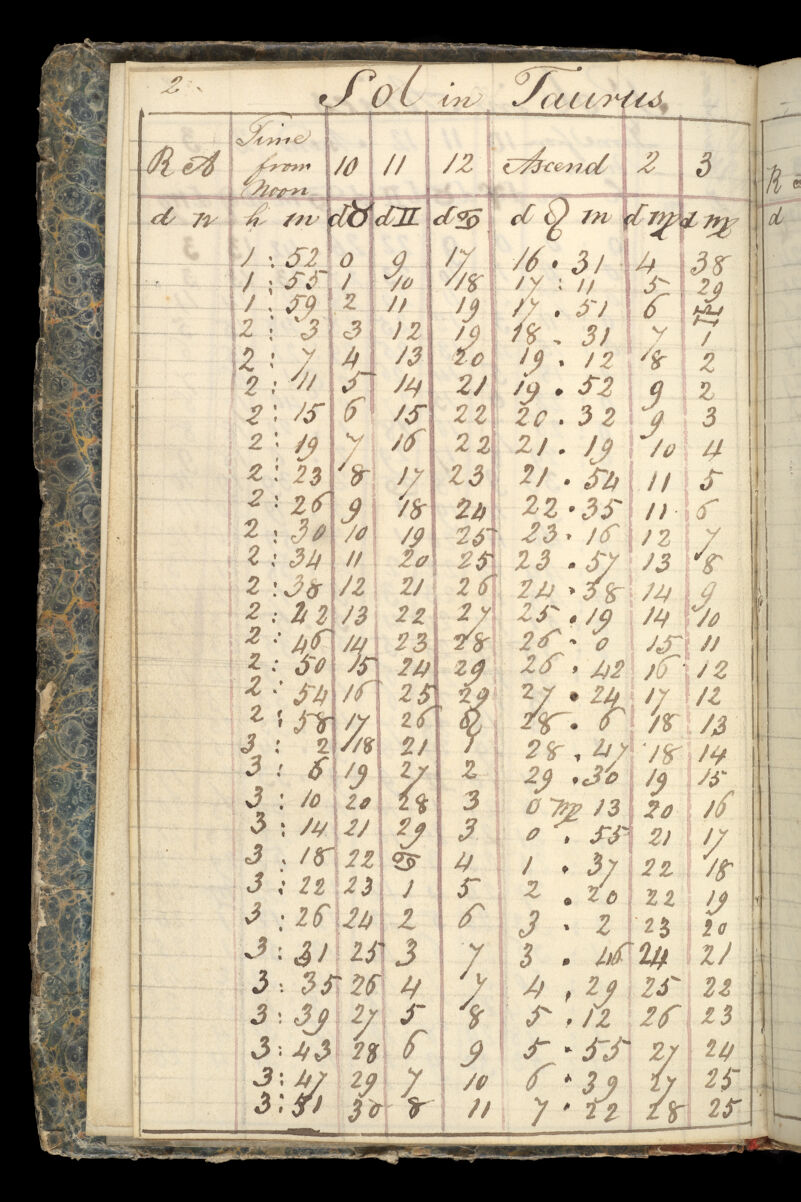 2.
Sol in Taurus
R A Time from Noon 10 11 12 Ascend 2 3
d n h m d♉ d♊ d♋ d ♌ m d♍ d♍
1 : 52 0 9 17 16 . 31 4 38
1 : 55 1 10 18 17 : 11 5 29
1 : 59 2 11 19 17 . 51 6 ♎
2 : 3 3 12 19 18 . 31 7 1
2 : 7 4 13 20 19 . 12 8 2
2 : 11 5 14 21 19 . 52 9 2
2 : 15 6 15 22 20 . 32 9 3
2 : 19 7 16 22 21 . 19 10 4
2 : 23 8 17 23 21 . 54 11 5
2 : 26 9 18 24 22 . 35 11 6
2 : 30 10 19 25 23 . 16 12 7
2 : 34 11 20 25 23 . 57 13 8
2 : 38 12 21 26 24 . 38 14 9
2 : 42 13 22 27 25 . 19 14 10
2 : 46 14 23 28 26 . 0 15 11
2 : 50 15 24 29 26 . 42 16 12
2 : 54 16 25 29 27 . 24 17 12
2 : 58 17 26 ♌ 28 . 6 18 13
3 : 2 18 21 1 28 . 47 18 14
3 : 6 19 27 2 29 . 30 19 15
3 : 10 20 28 3 0 ♍ 13 20 16
3 : 14 21 29 3 0 . 55 21 17
3 . 18 22 ♋ 4 1 . 37 22 18
3 : 22 23 1 5 2 . 20 22 19
3 : 26 24 2 6 3 . 2 23 20
3 : 31 25 3 7 3 . 46 24 21
3 : 35 26 4 7 4 . 29 25 22
3 : 39 27 5 8 5 . 12 26 23
3 : 43 28 6 9 5 . 55 27 24
3 : 47 29 7 10 6 . 39 27 25
3 : 51 30 8 11 7 . 22 28 25
R
d